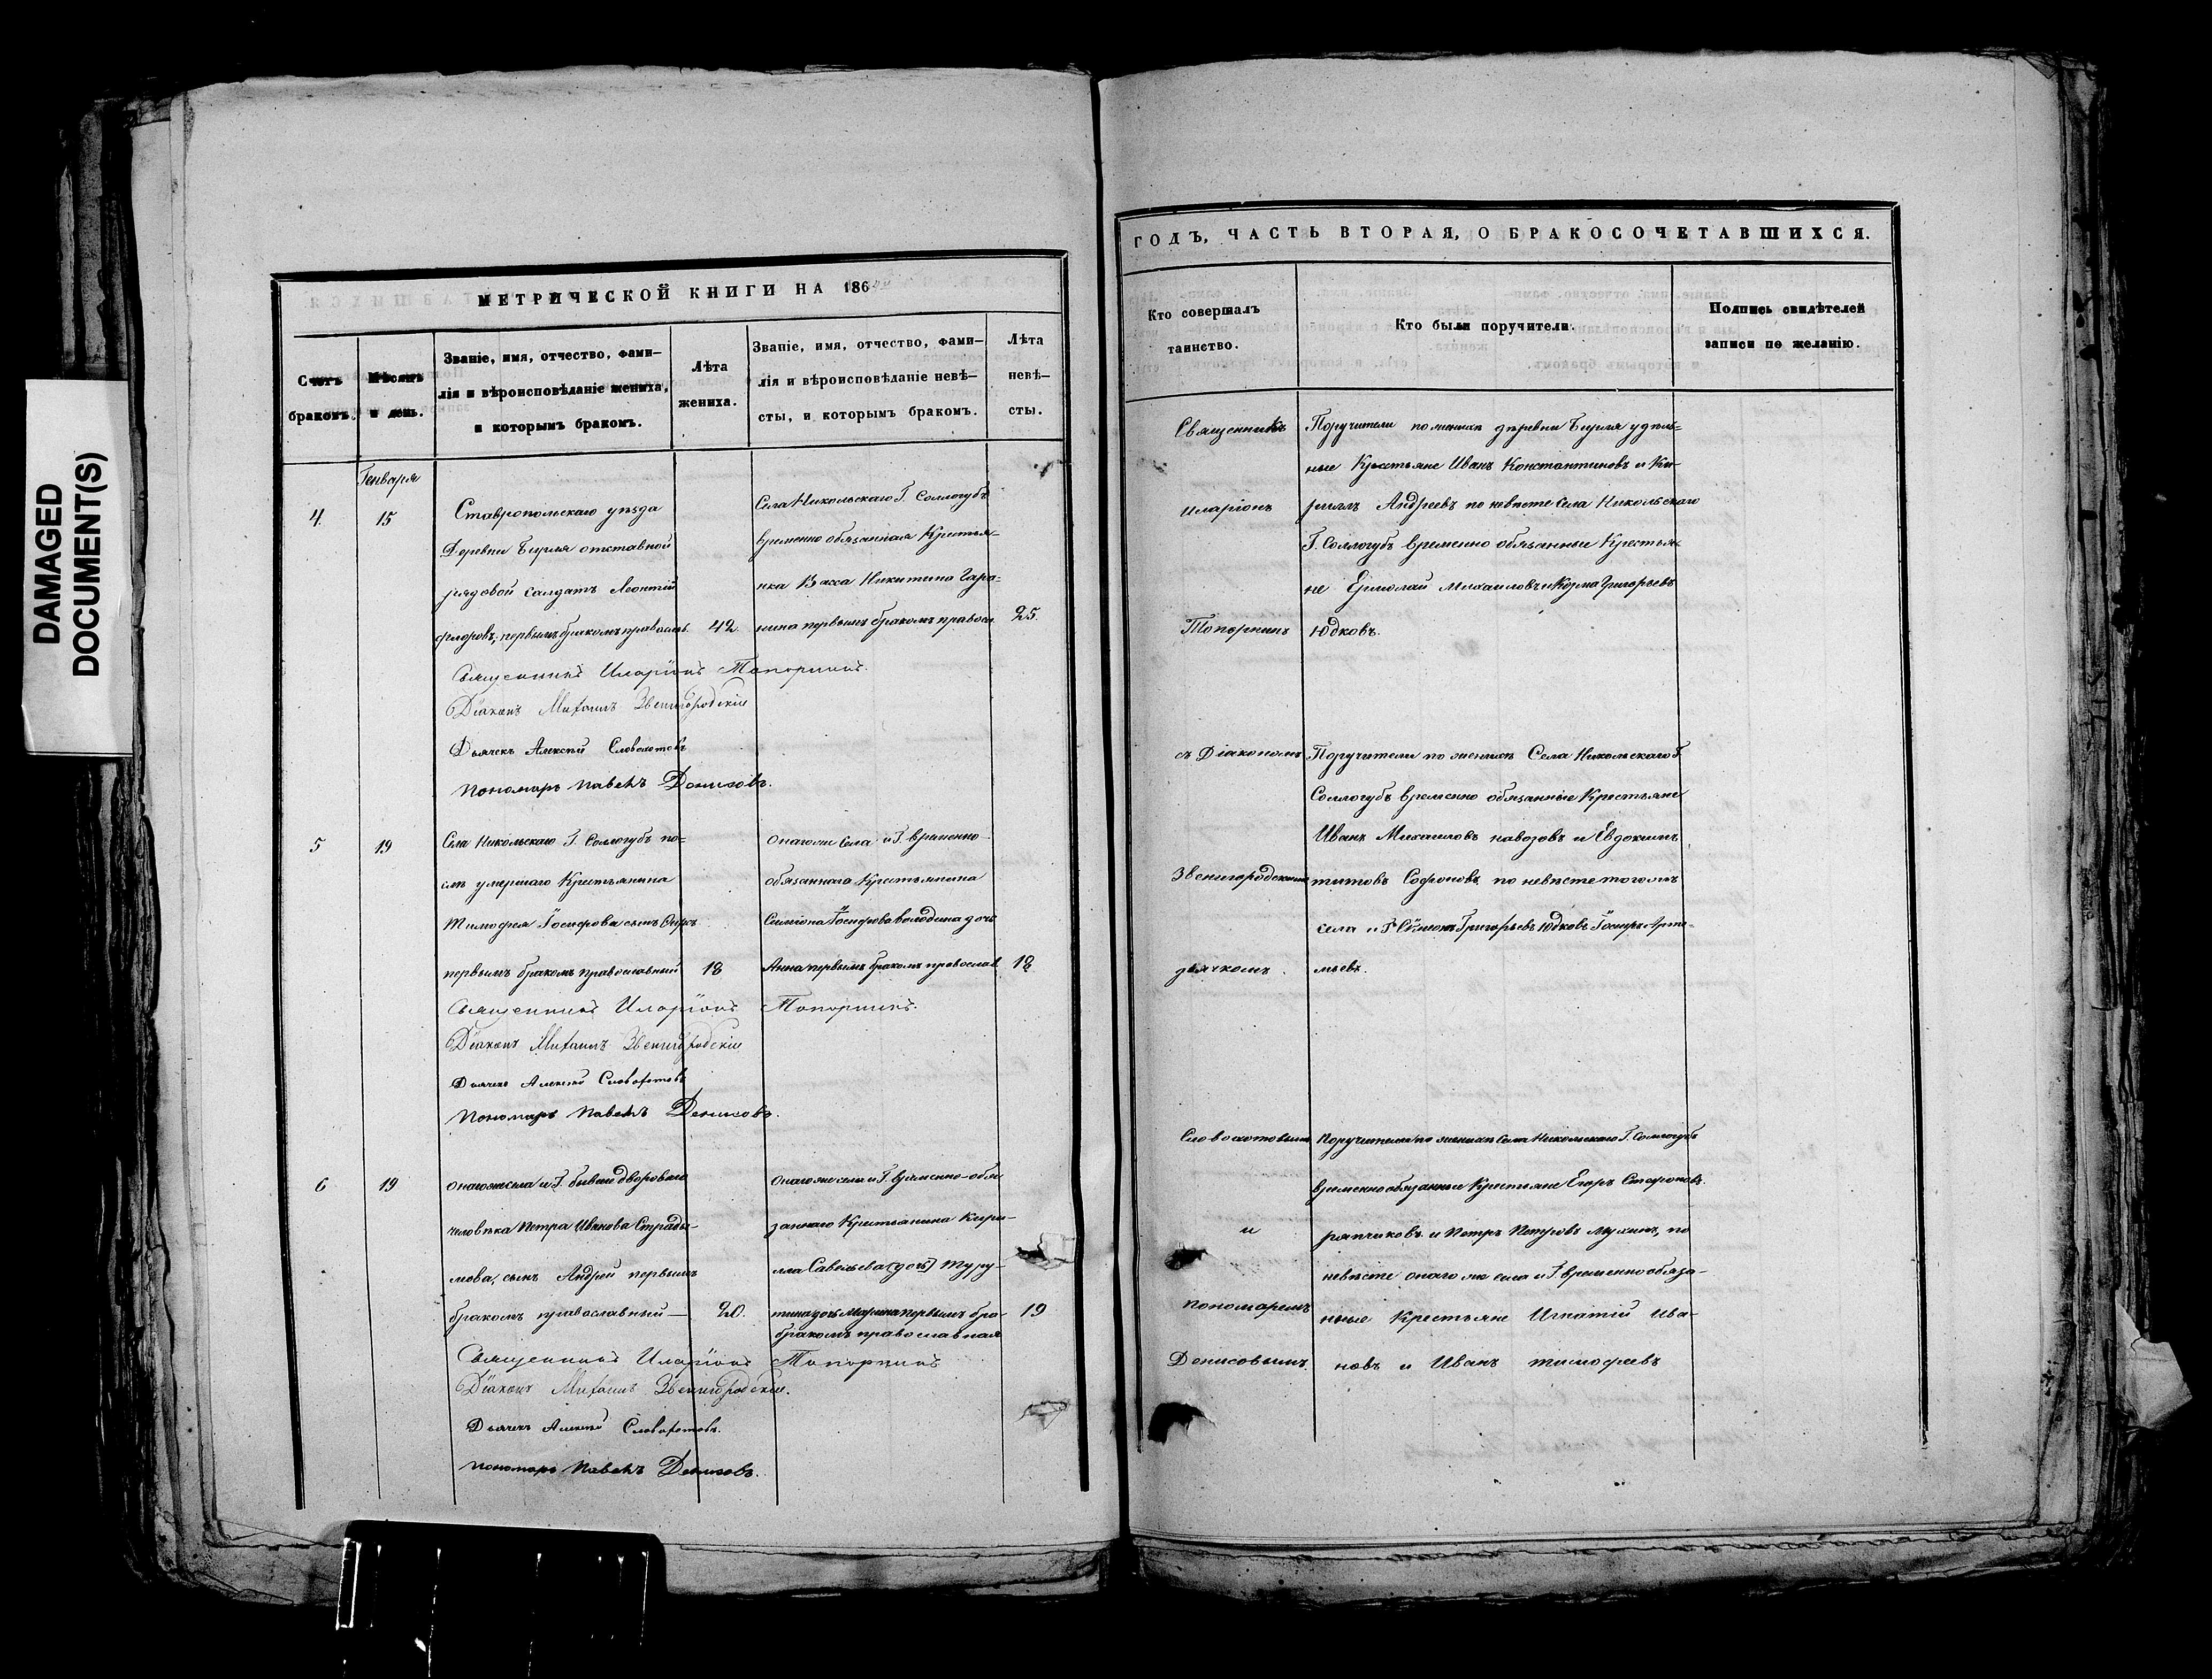 DAMAGED
DOCUMENT(S)
МЕТРИЧЕСКОЙ КНИГИ НА 186
Счетъ
браковъ.
Мѣсяцъ
и день.
Званіе, имя, отчество, фами-
лія и вѣроисповѣданіе жениха,
и которымъ бракомъ.
Лѣта
жениха.
Званіе, имя, отчество, фами-
лія и вѣроисповѣданіе невѣ-
сты, и которымъ бракомъ.
Лѣта
невѣ-
сты.
Генваря
4. 15
Ставропольскаго уѣзда
Деревни отставной
рядовой салдатъ Леонтій
Флоровъ, первымъ бракомъ православ. 42.
Села Никольскаго Г. Соллогубъ
временно обязанная Крестья-
нка Васса Никитина Гара-
нина первымъ бракомъ правосл 25.
Священникъ Иларіонъ Топорнинъ.
Діаконъ Михаилъ Звенигородскій
Дьячекъ Алексѣй Словохотовъ
Пономарь Павелъ Денисовъ.
5 19
Села Никольскаго Г. Соллогубъ по-
слѣ умершаго Крестьянина
Тимофея Іосифова сынъ
первымъ бракомъ православный 18
онагоже Села и Г. временно
обязаннаго Крестьянина
Симіона Іосифова Володина дочь
Анна первымъ бракомъ православ. 18
Священникъ Иларіонъ Топорнинъ.
Діаконъ Михаилъ Звенигородскій
Дьячекъ Алексѣй Словохотовъ
Пономарь Павелъ Денисовъ.
6 19
онагоже села и Г. бывш двороваго
человѣка Петра Иванова Страды-
мова, сынъ Андрей первымъ
бракомъ православный — 20.
онагоже села и Г. временно-обя
заннаго Крестьянина Кири-
лла Савельева (дочь) Туру-
тина дочь Марина первымъ бра- 19
бракомъ православная
Священникъ Иларіонъ Топорнинъ
Діаконъ Михаилъ Звенигородскій.
Дьячекъ Алексѣй Словохотовъ.
Пономарь Павелъ Денисовъ.
ГОДЪ, ЧАСТЬ ВТОРАЯ, О БРАКОСОЧЕТАВШИХСЯ.
Кто совершалъ
таинство.
Кто были поручители.
Подпись свидѣтелей
записи по желанію.
Священникъ
Иларіонъ
Топорнинъ
съ Діакономъ
Звенигородскимъ
дьячкомъ
Словохотовымъ
и
пономаремъ
Денисовымъ.
Поручители по женихѣ деревни удѣль-
ные Крестьяне Иванъ Константиновъ и Ки-
риллъ Андреевъ по невѣсте Села Никольскаго
Г. Соллогубъ временно обязанные Крестья-
не Ермолай Михаиловъ и Козма Григорьевъ
Юдковъ.
Поручители по женихѣ Села Никольскаго Г.
Соллогубъ временно обязанные Крестьяне
Иванъ Михаиловъ навозовъ и Евдокимъ
титовъ Софоновъ по невѣсте тогожъ
села и Г. Симіонъ Григорьевъ Юдковъ Іосифъ Арте-
мьевъ.
Поручители по женихѣ Села Никольскаго Г. Соллогубъ
временно обязанные Крестьяне Егоръ
ряпчиковъ и Петръ Петровъ Мухинъ, по
невѣсте онаго же села и Г. временно обяза-
нные Крестьяне Игнатій Ива-
новъ и Иванъ тимофеевъ